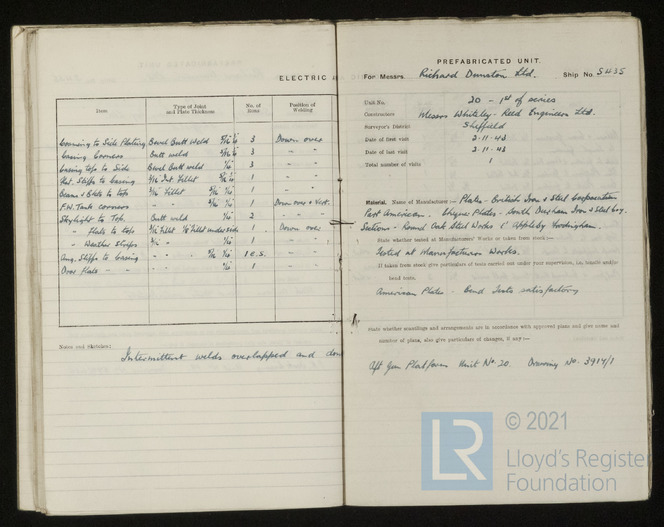 ELECTRIC
Item Type of Joint and Plate Thickness No. of Items Position of Welding
Coaming to Side Plating Bevel Butt Weld 3 Down over
Casing Corners Butt weld 3 " "
Casing top to Side Bevel Butt weld 3 " "
Stiffs to Casing Int. Fillet 1 " "
Beams & to top Fillet 1 " "
F.W. Tank corners " " 1 Down over + Vert.
Skylight to Top. Butt weld 2 " "
" to top Fillet Fillet underside 1 Down over
" Weather " 1 " "
Ang. Stiffs to Casing " " 1 E.S. " "
Door " " 1 " "
Notes and Sketches:
Intermittent welds overlapped and
PREFABRICATED UNIT.
For Messrs. Richard Dunston Ltd. Ship No. S435
Unit No. 20 - 1st of series
Constructors Messrs Whiteley-Read Engineers Ltd.
Surveyor's District Sheffield
Date of first visit 2.11.43
Date of last visit 2.11.43
Total number of visits 1
Material. Name of Manufacturer:- Plates - British Iron & Steel Corporation
Part American. Plates - South Durham Iron & Steel Coy.
Sections - Round Oak Steel Works & Appleby Frodingham.
State whether tested at Manufacturers' Works or taken from stock:-
Tested at Manufacturers Works.
If taken from stock give particulars of tests carried out under your supervision, i.e., tensile and/or
bend tests.
American Plates - Bend Tests satisfactory
State whether scantlings and arrangements are in accordance with approved plans and give name and
number of plans, also give particulars of changes, if any:-
Aft Gun Platform Unit No. 20. Drawing No. 3914/1
LR
© 2021
Lloyd's Register
Foundation